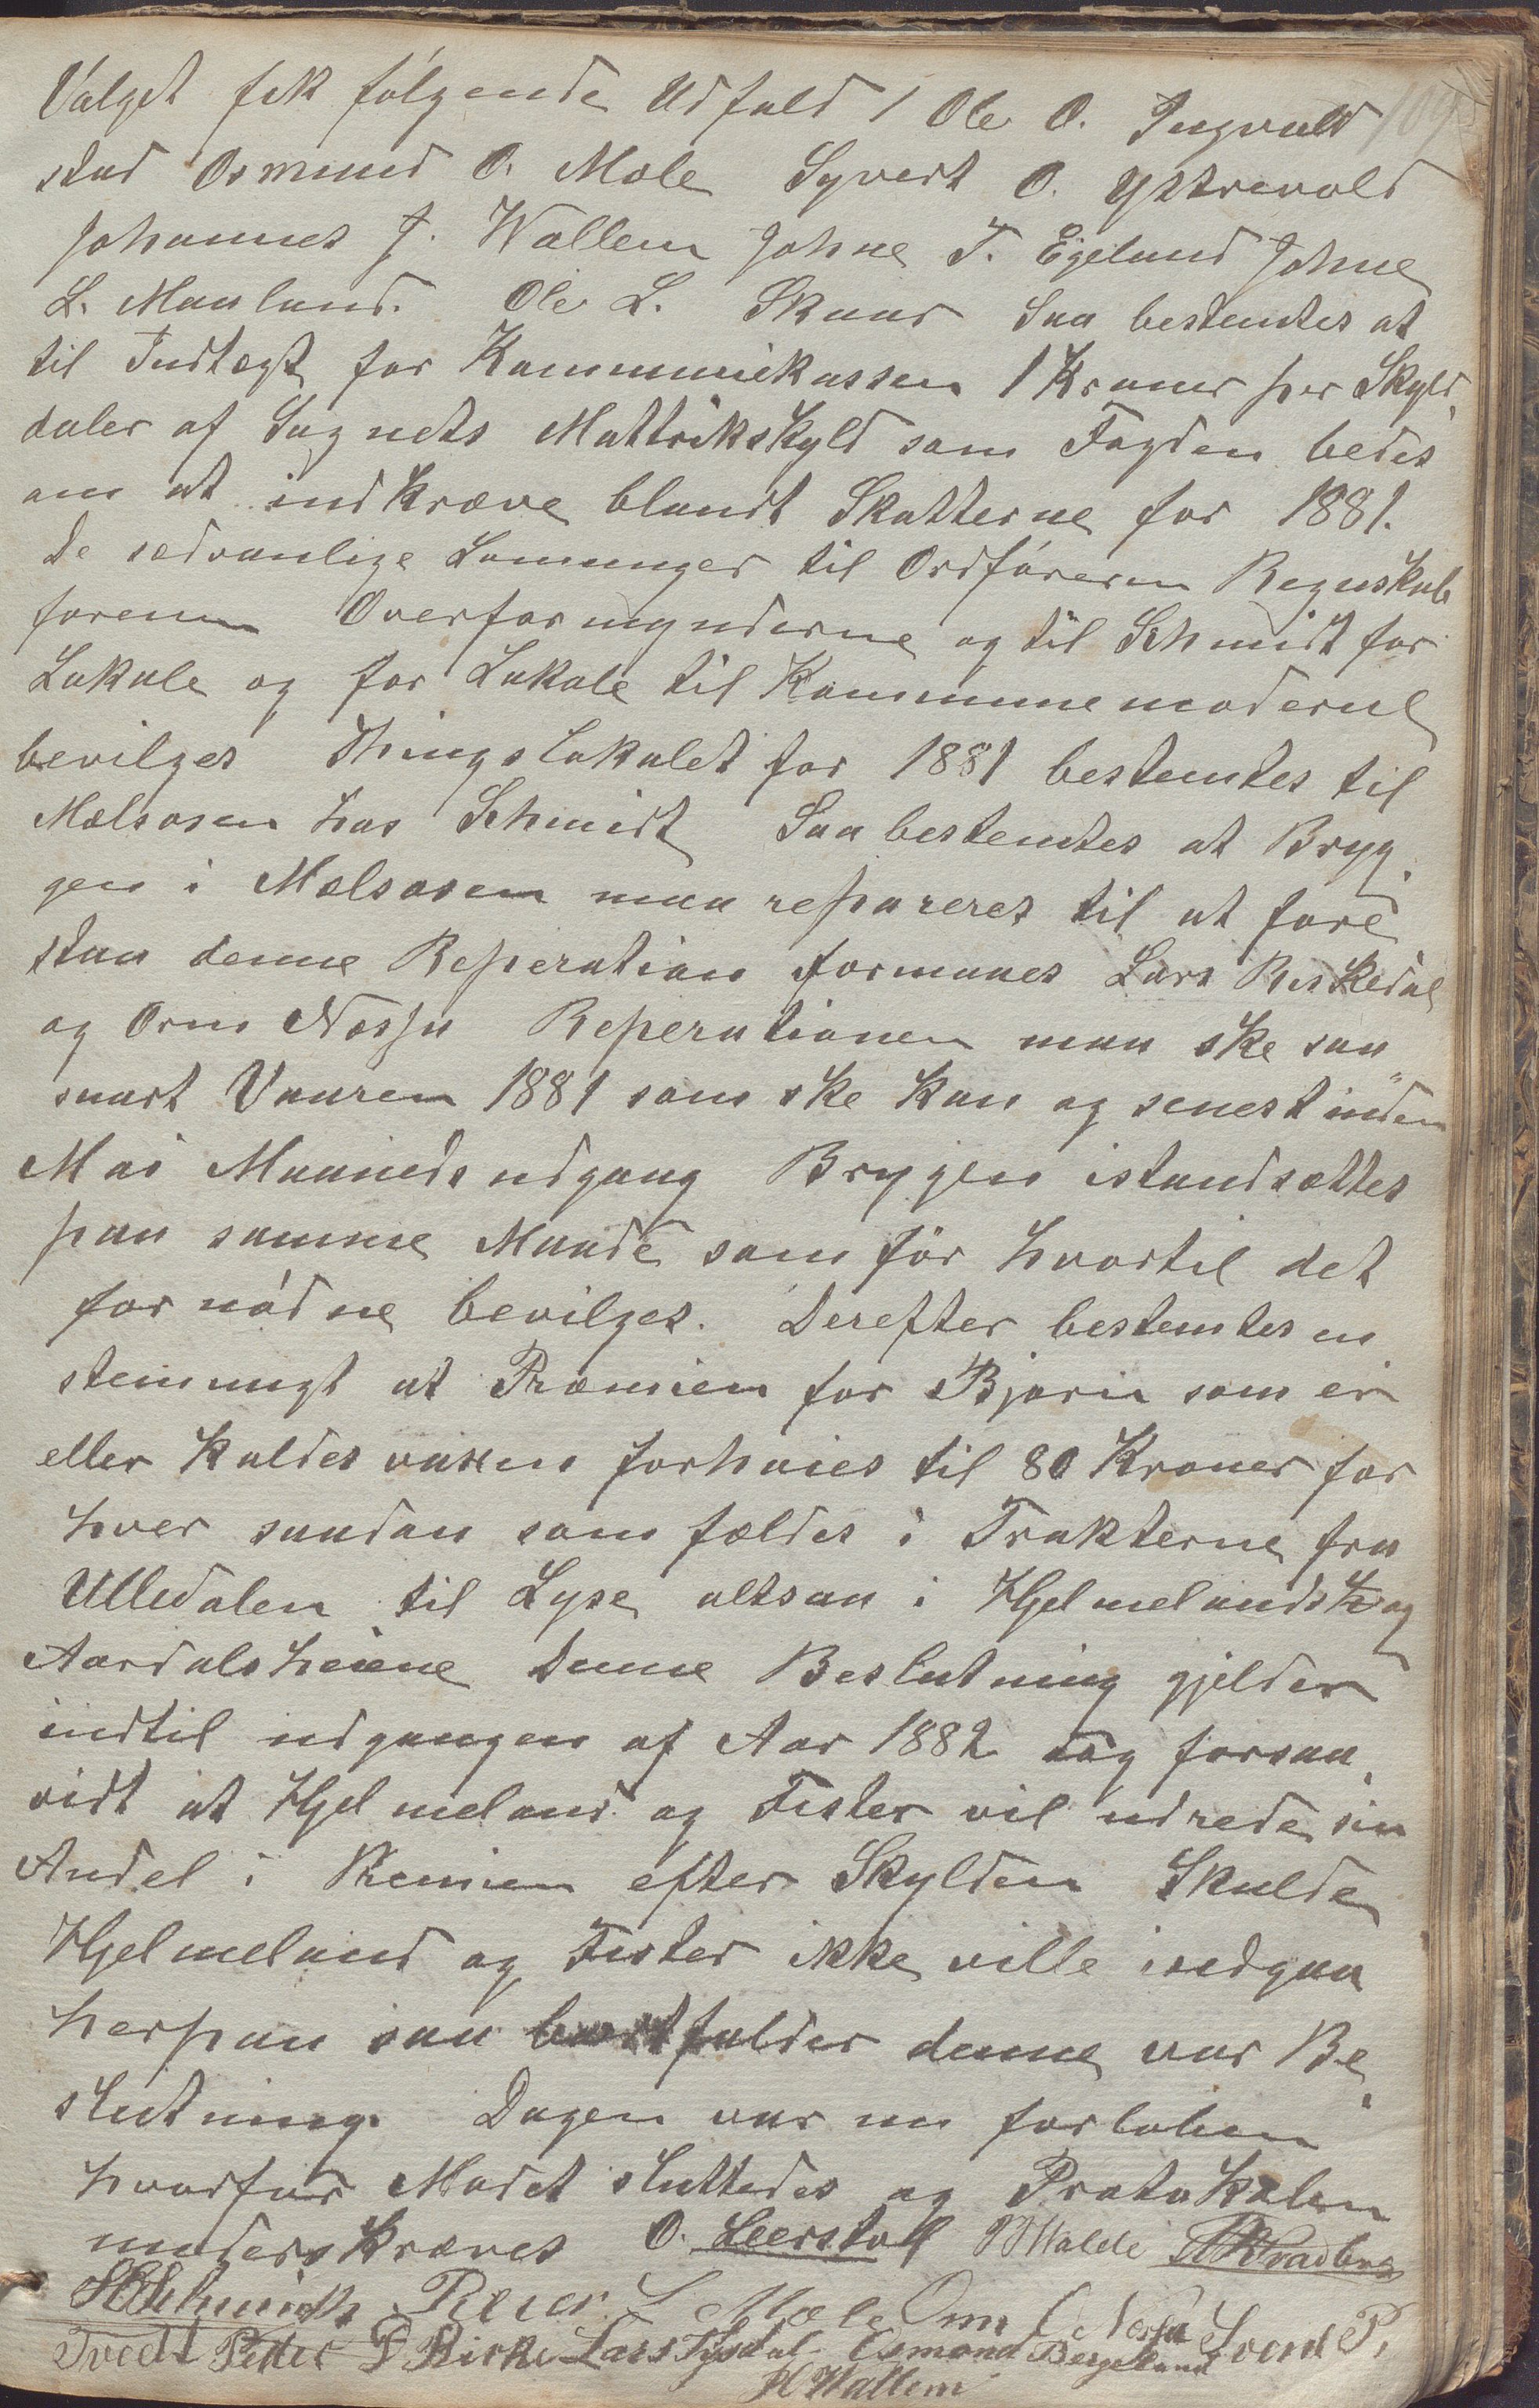 109
Valget fik følgende Udfald / Ole O. Ingvald
stad Osmund O. Mæle Syvert O. Ystrevold
Johannes J. Wallem Johne T. Egeland Johne
L. Mauland. Ole L. Skaar Saa bestemtes at
til Indtægt for Kommunekassen 1 Kroner per Skyld,
daler af Sognets Mattrikskyld som Fogden bedes
om at indkræve blandt Skatterne for 1881.
De sædvanlige Lønninger til Ordføreren Regnskab
føreren Overformynderne og til Schmidt for
Lokale og for Lokale til Kommunemøderne
bevilges Thingslokalet for 1881 bestemtes til
Mælsosen hos Schmidt Saa bestemtes at Bryg,
gen i Mælsosen maa repareres til at fore
staa denne Reperation formanes Lars Riskedal
og Orm Nessa Reperationen maa ske saa
snart Vaaren 1881 som ske kan og senest inden
Mai Maaneds udgang Brygjen istandsættes
paa samme Maade som før hvortil det
fornødne bevilges. Derefter bestemtes en
stemmigt at Præmien for Bjørn som er
eller kaldes vaxen forhøies til 80 Kroner for
hver saadan som fældes i Trakterne fra
Ulledalen til Lyse altsaa i Hjelmelands og
Aardalsheiene Denne Beslutning gjelder
indtil udgangen af Aar 1882 og forsaa,
vidt at Hjelmeland og Fister vil udrede sin
Andel i Premien efter Skylden Skulde
Hjelmeland og Fister ikke ville indgaa
herpaa saa bortfalder denne vor Be,
slutning. Dagen var nu forløben
hvorfor Mødet sluttedes og Protokolen
underskreves O. Leerstad Walde
H Schmidt Peder L Mæle Orm C Nessa Svend P.
Tvedt Peder P Kirke Lars Tysdal Osmond Bergeland
H Wallem